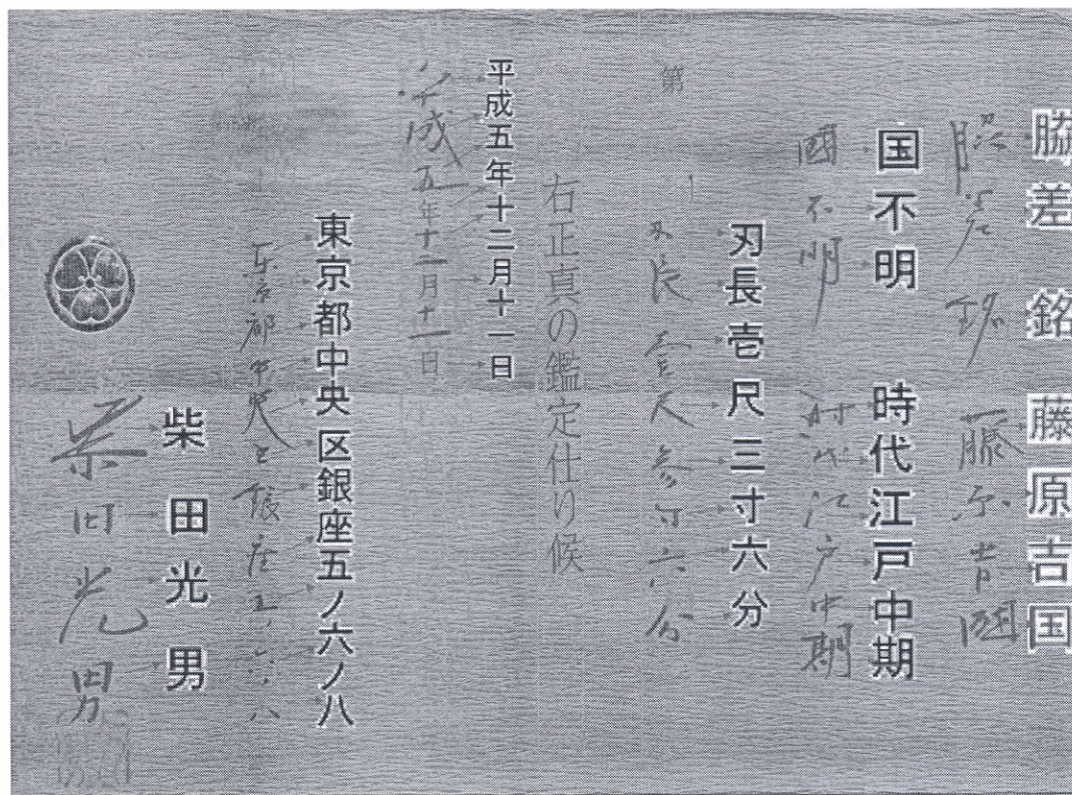 脇差 銘 藤原吉国
脇差 銘 藤原吉國
国不明 時代江戸中期
國不明 時代江戸中期
刃長壱尺三寸六分
第
刃長壹尺参寸六分
右正真の鑑定仕り候
平成五年十二月十一日
平成五年十二月十一日
東京都中央区銀座五ノ六ノ八
東京都中央区銀座五ノ六ノ八
柴田光男
柴田光男